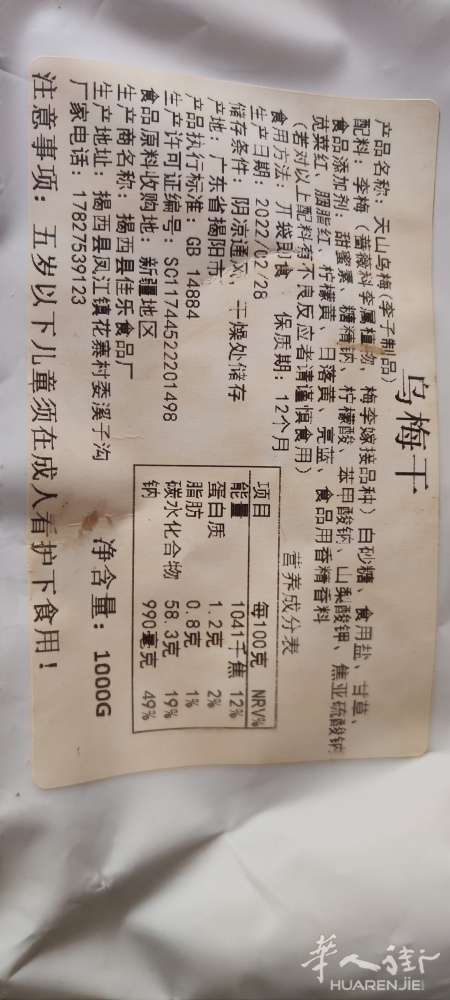 乌梅干
产品名称：天山乌梅(李子制品)
配料：李梅（蔷薇科李属植物、梅李嫁接品种）白砂糖、食用盐、甘草、
食品添加剂：甜蜜素、糖精钠、柠檬酸、苯甲酸钠、山梨酸钾、焦亚硫酸钠
苋菜红、胭脂红、柠檬黄、日落黄、亮蓝、食品用香精香料
（若对以上配料有不良反应者请谨慎食用）
食用方法：开袋即食、保质期：12个月
生产日期：2022/02/28
储存条件：阴凉通风、干燥处储存
产地：广东省揭阳市
产品执行标准：GB 14884
生产许可证编号：SC11744522201498
食品原料收购地：新疆地区
生产商名称：揭西县佳乐食品厂
生产地址：揭西县凤江镇花寨村委溪子沟
厂家电话：17827539123
营养成分表
项目 每100克 NRV%
能量 1041千焦 12%
蛋白质 1.2克 2%
脂肪 0.8克 1%
碳水化合物 58.3克 19%
钠 990毫克 49%
净含量：1000G
注意事项：五岁以下儿童须在成人看护下食用！
华人街
HUARENJIE